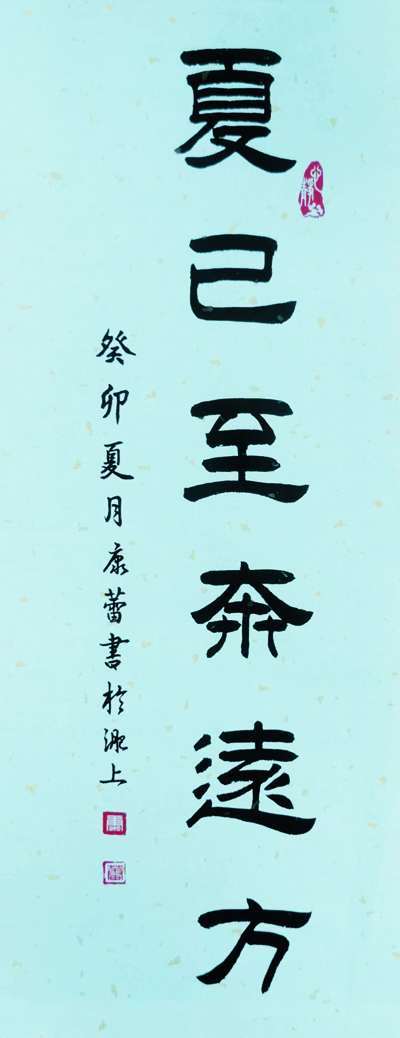 夏已至奔遠方
癸卯夏月康蕾書於源上